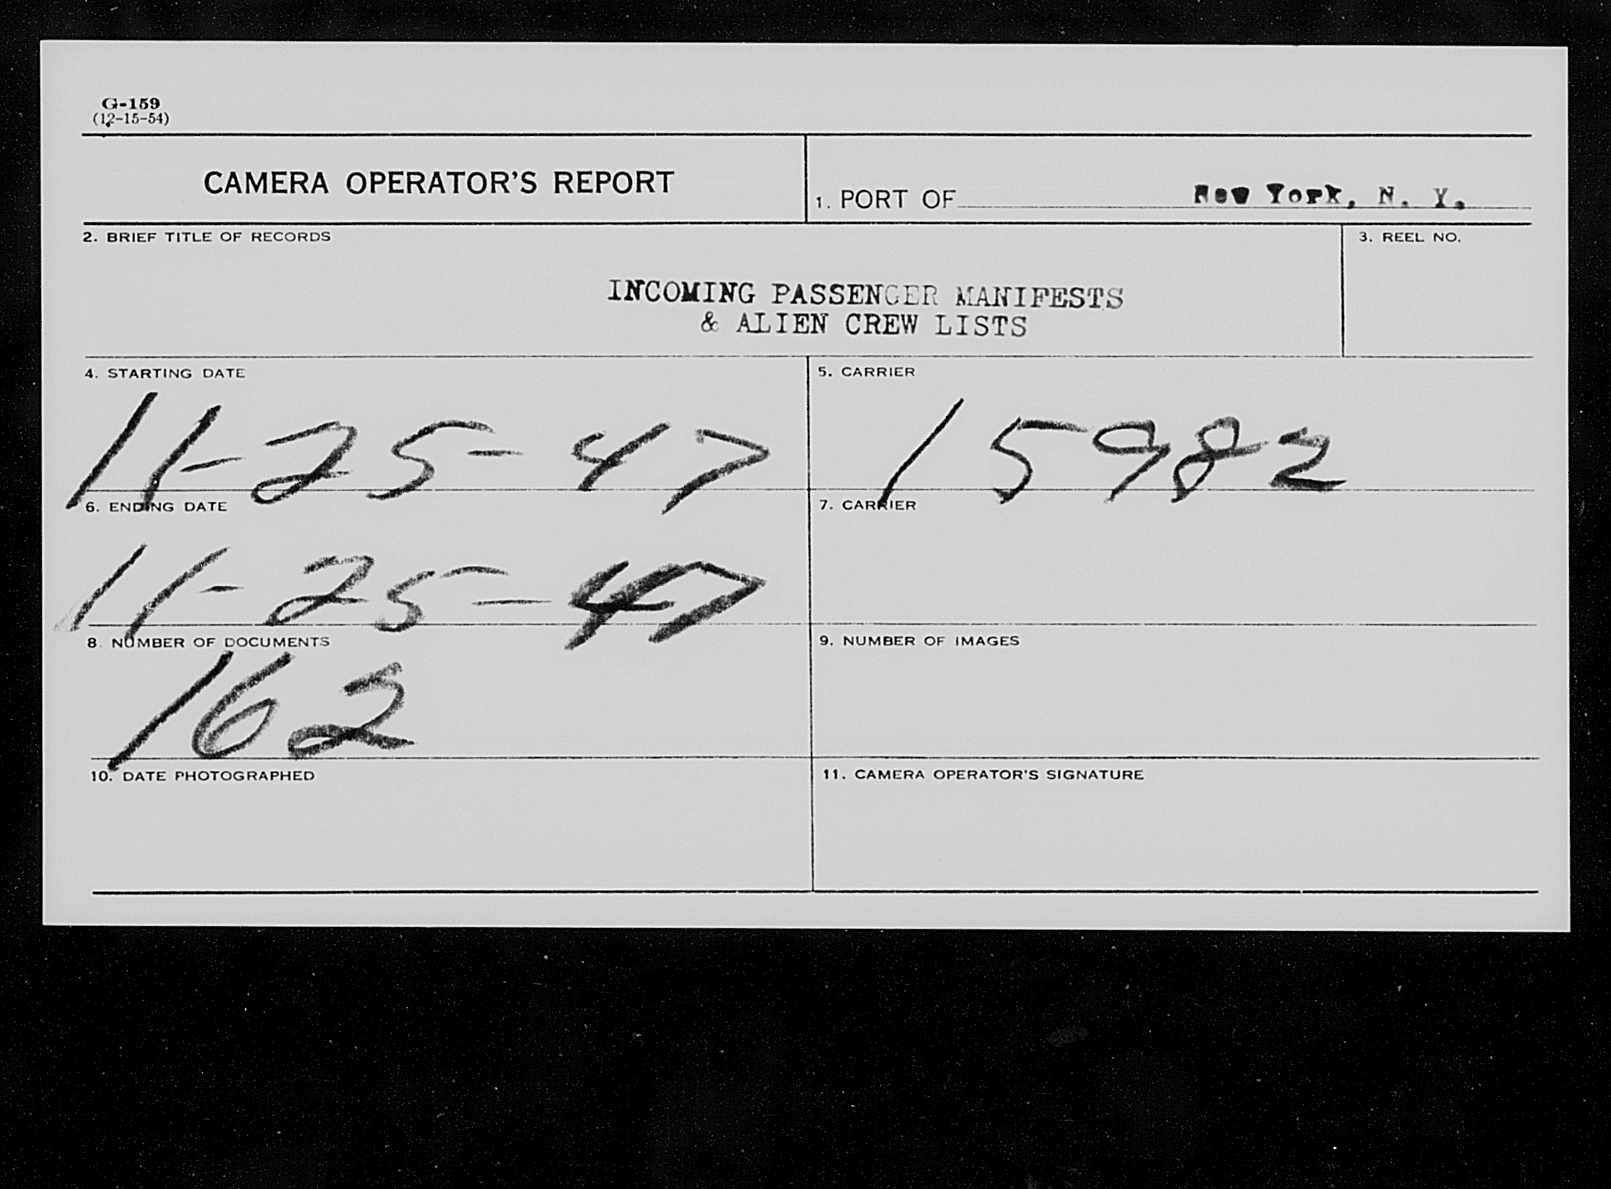 G-159
(12-15-54)
CAMERA OPERATOR'S REPORT
1. PORT OF New York, N. Y.
2. BRIEF TITLE OF RECORDS
3. REEL NO.
INCOMING PASSENGER MANIFESTS
& ALIEN CREW LISTS
4. STARTING DATE
11-25-47
5. CARRIER
15982
6. ENDING DATE
11-25-47
7. CARRIER
8. NUMBER OF DOCUMENTS
162
9. NUMBER OF IMAGES
10. DATE PHOTOGRAPHED
11. CAMERA OPERATOR'S SIGNATURE